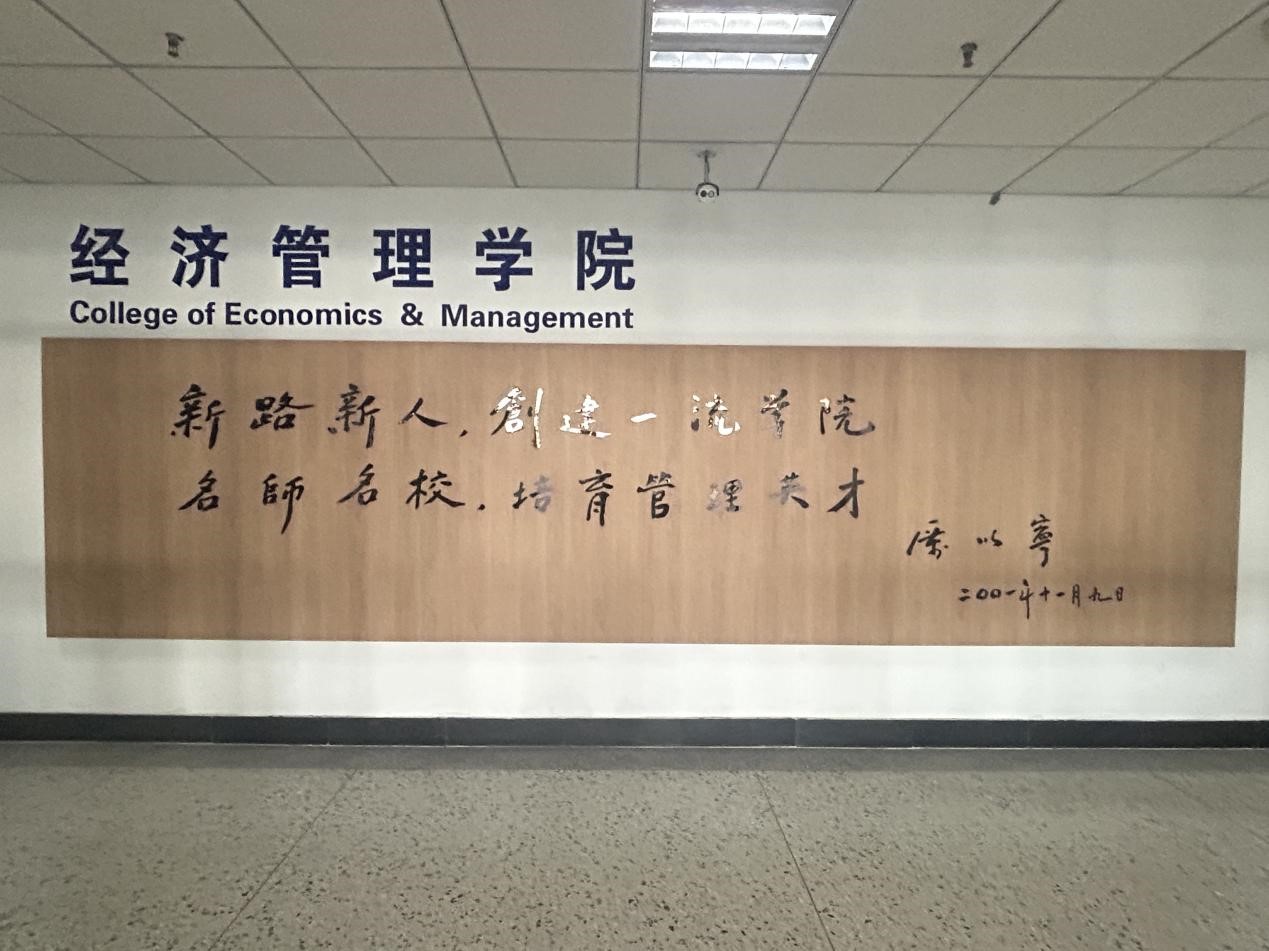 经济管理学院
College of Economics & Management
新路新人,創建一流学院
名師名校,培育管理英才
厲以寧
二〇〇一年十一月九日